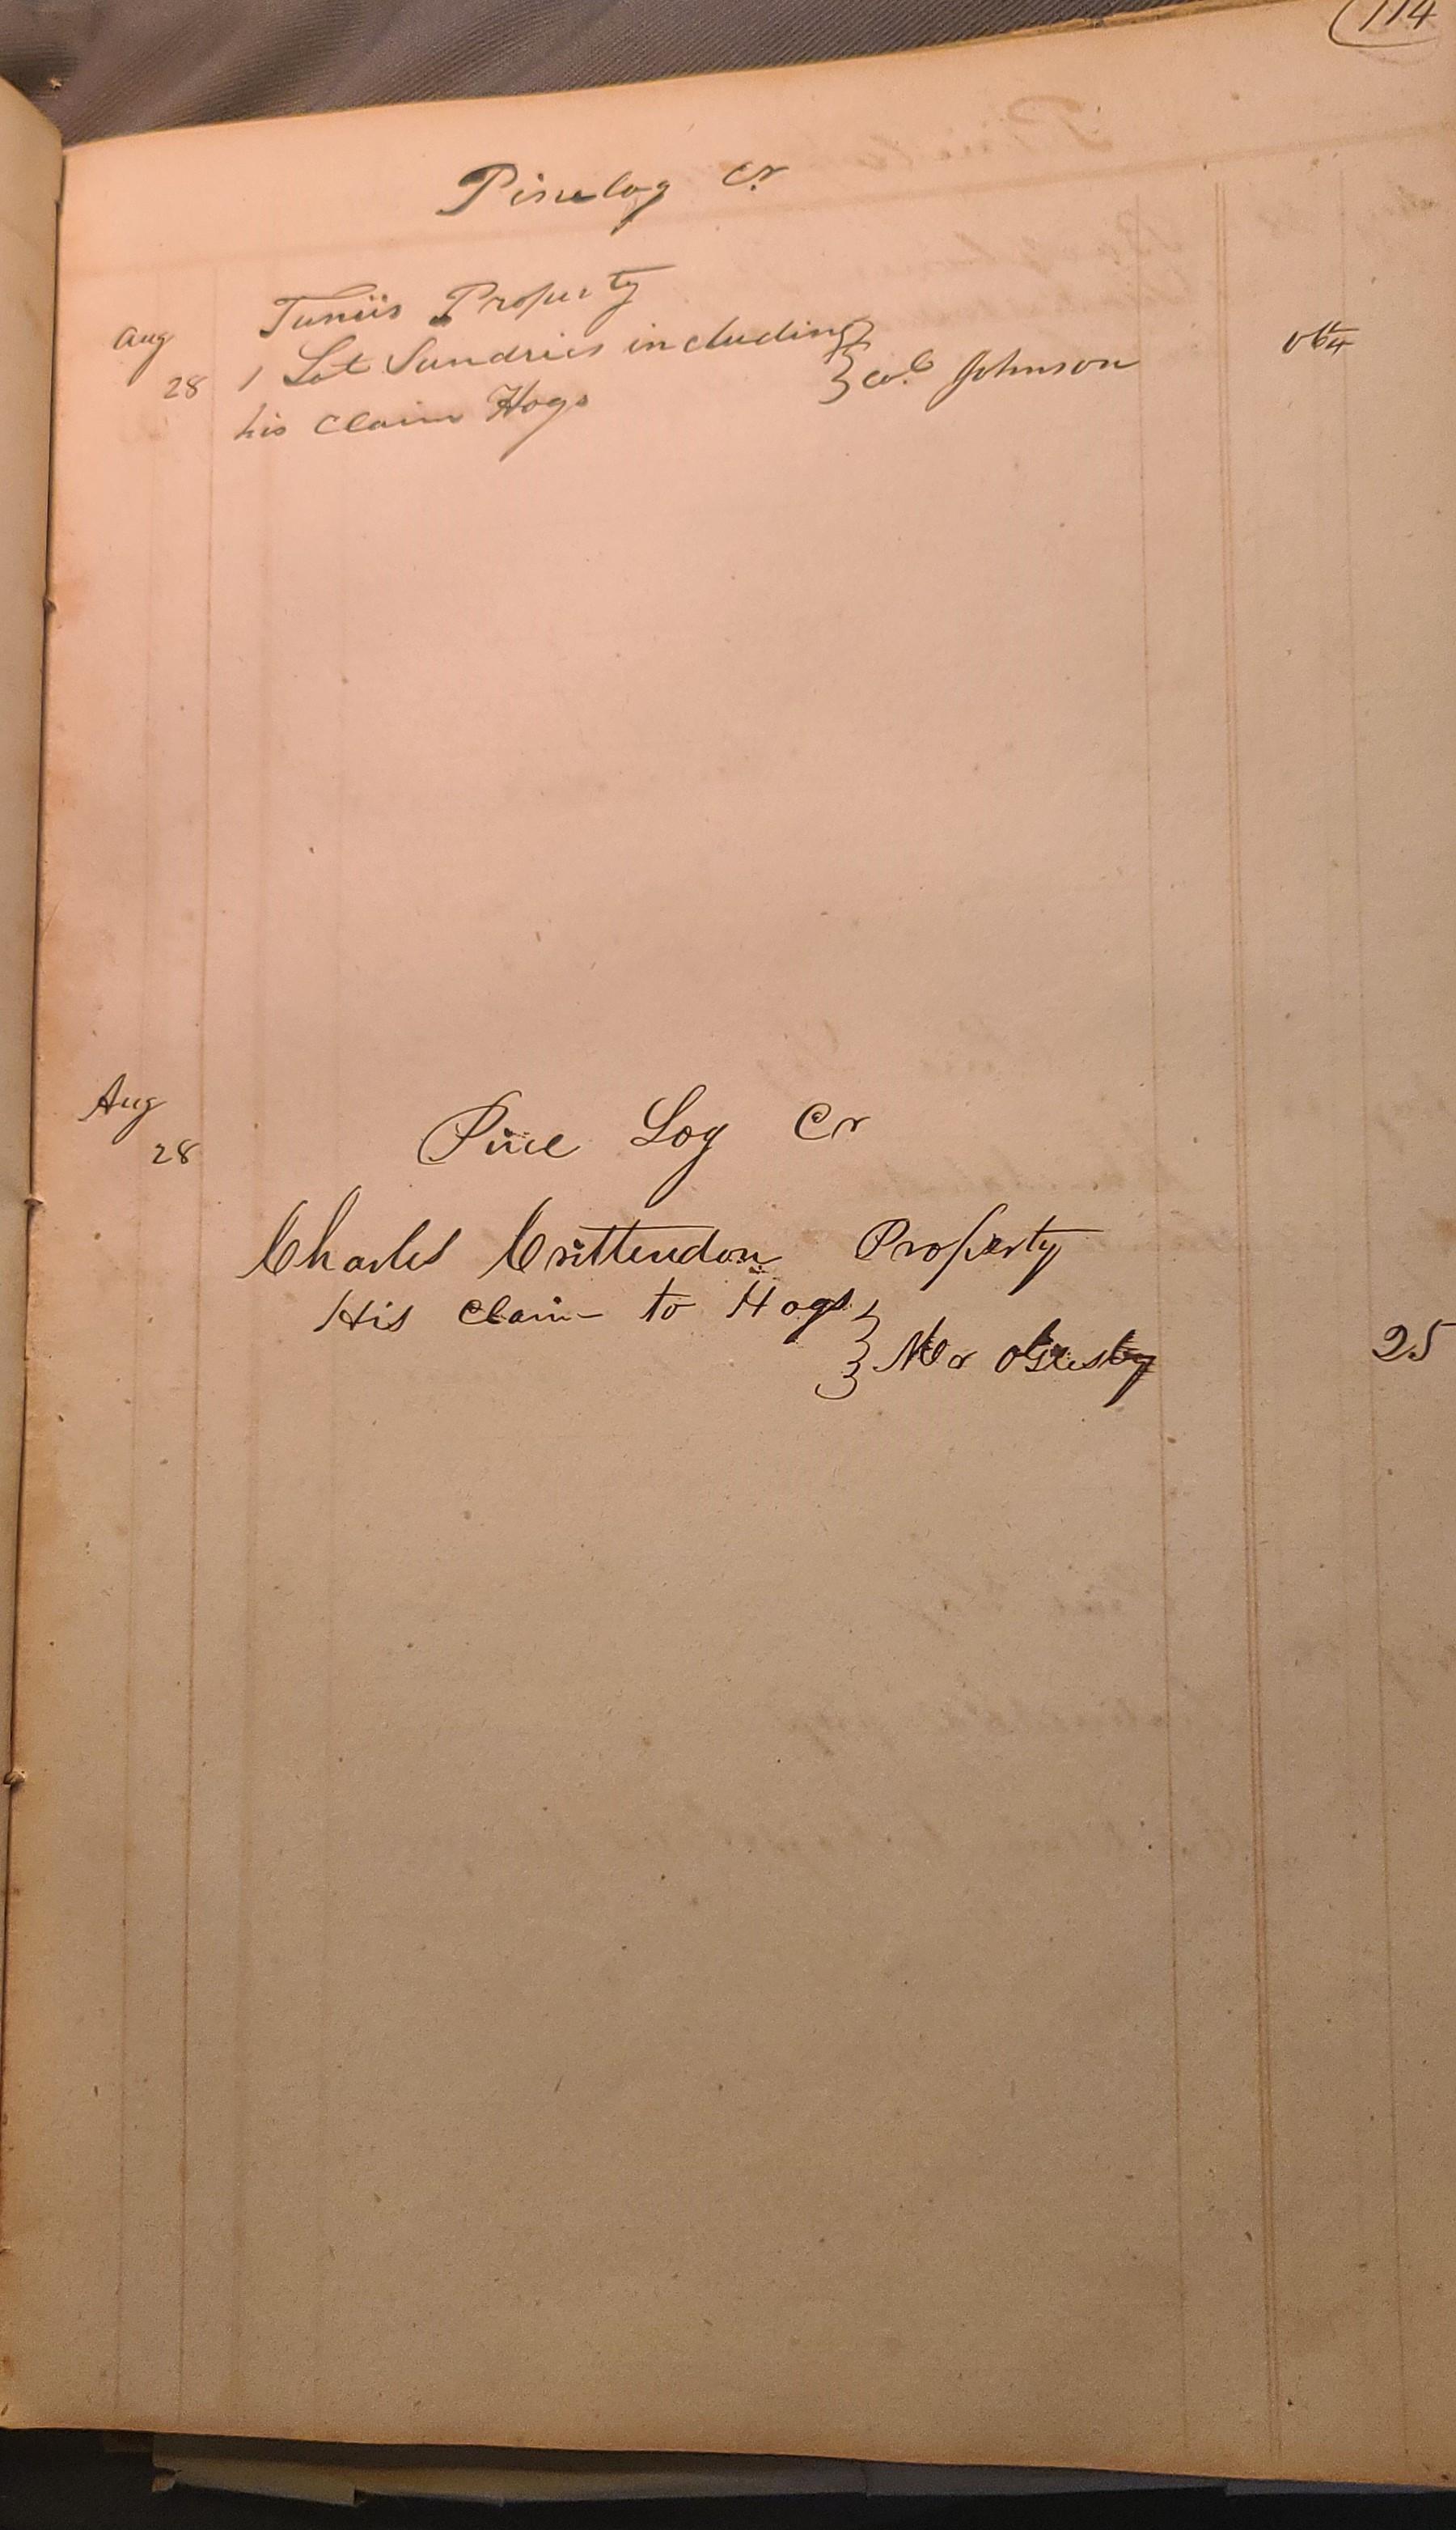 114
Pinelog Cr
Aug
28
Property
1 Lot Sundries including
his Claim Hogs
Johnson
Aug
28
Pine Log Cr
Charles Crittendon Property
His Claim to Hogs
25